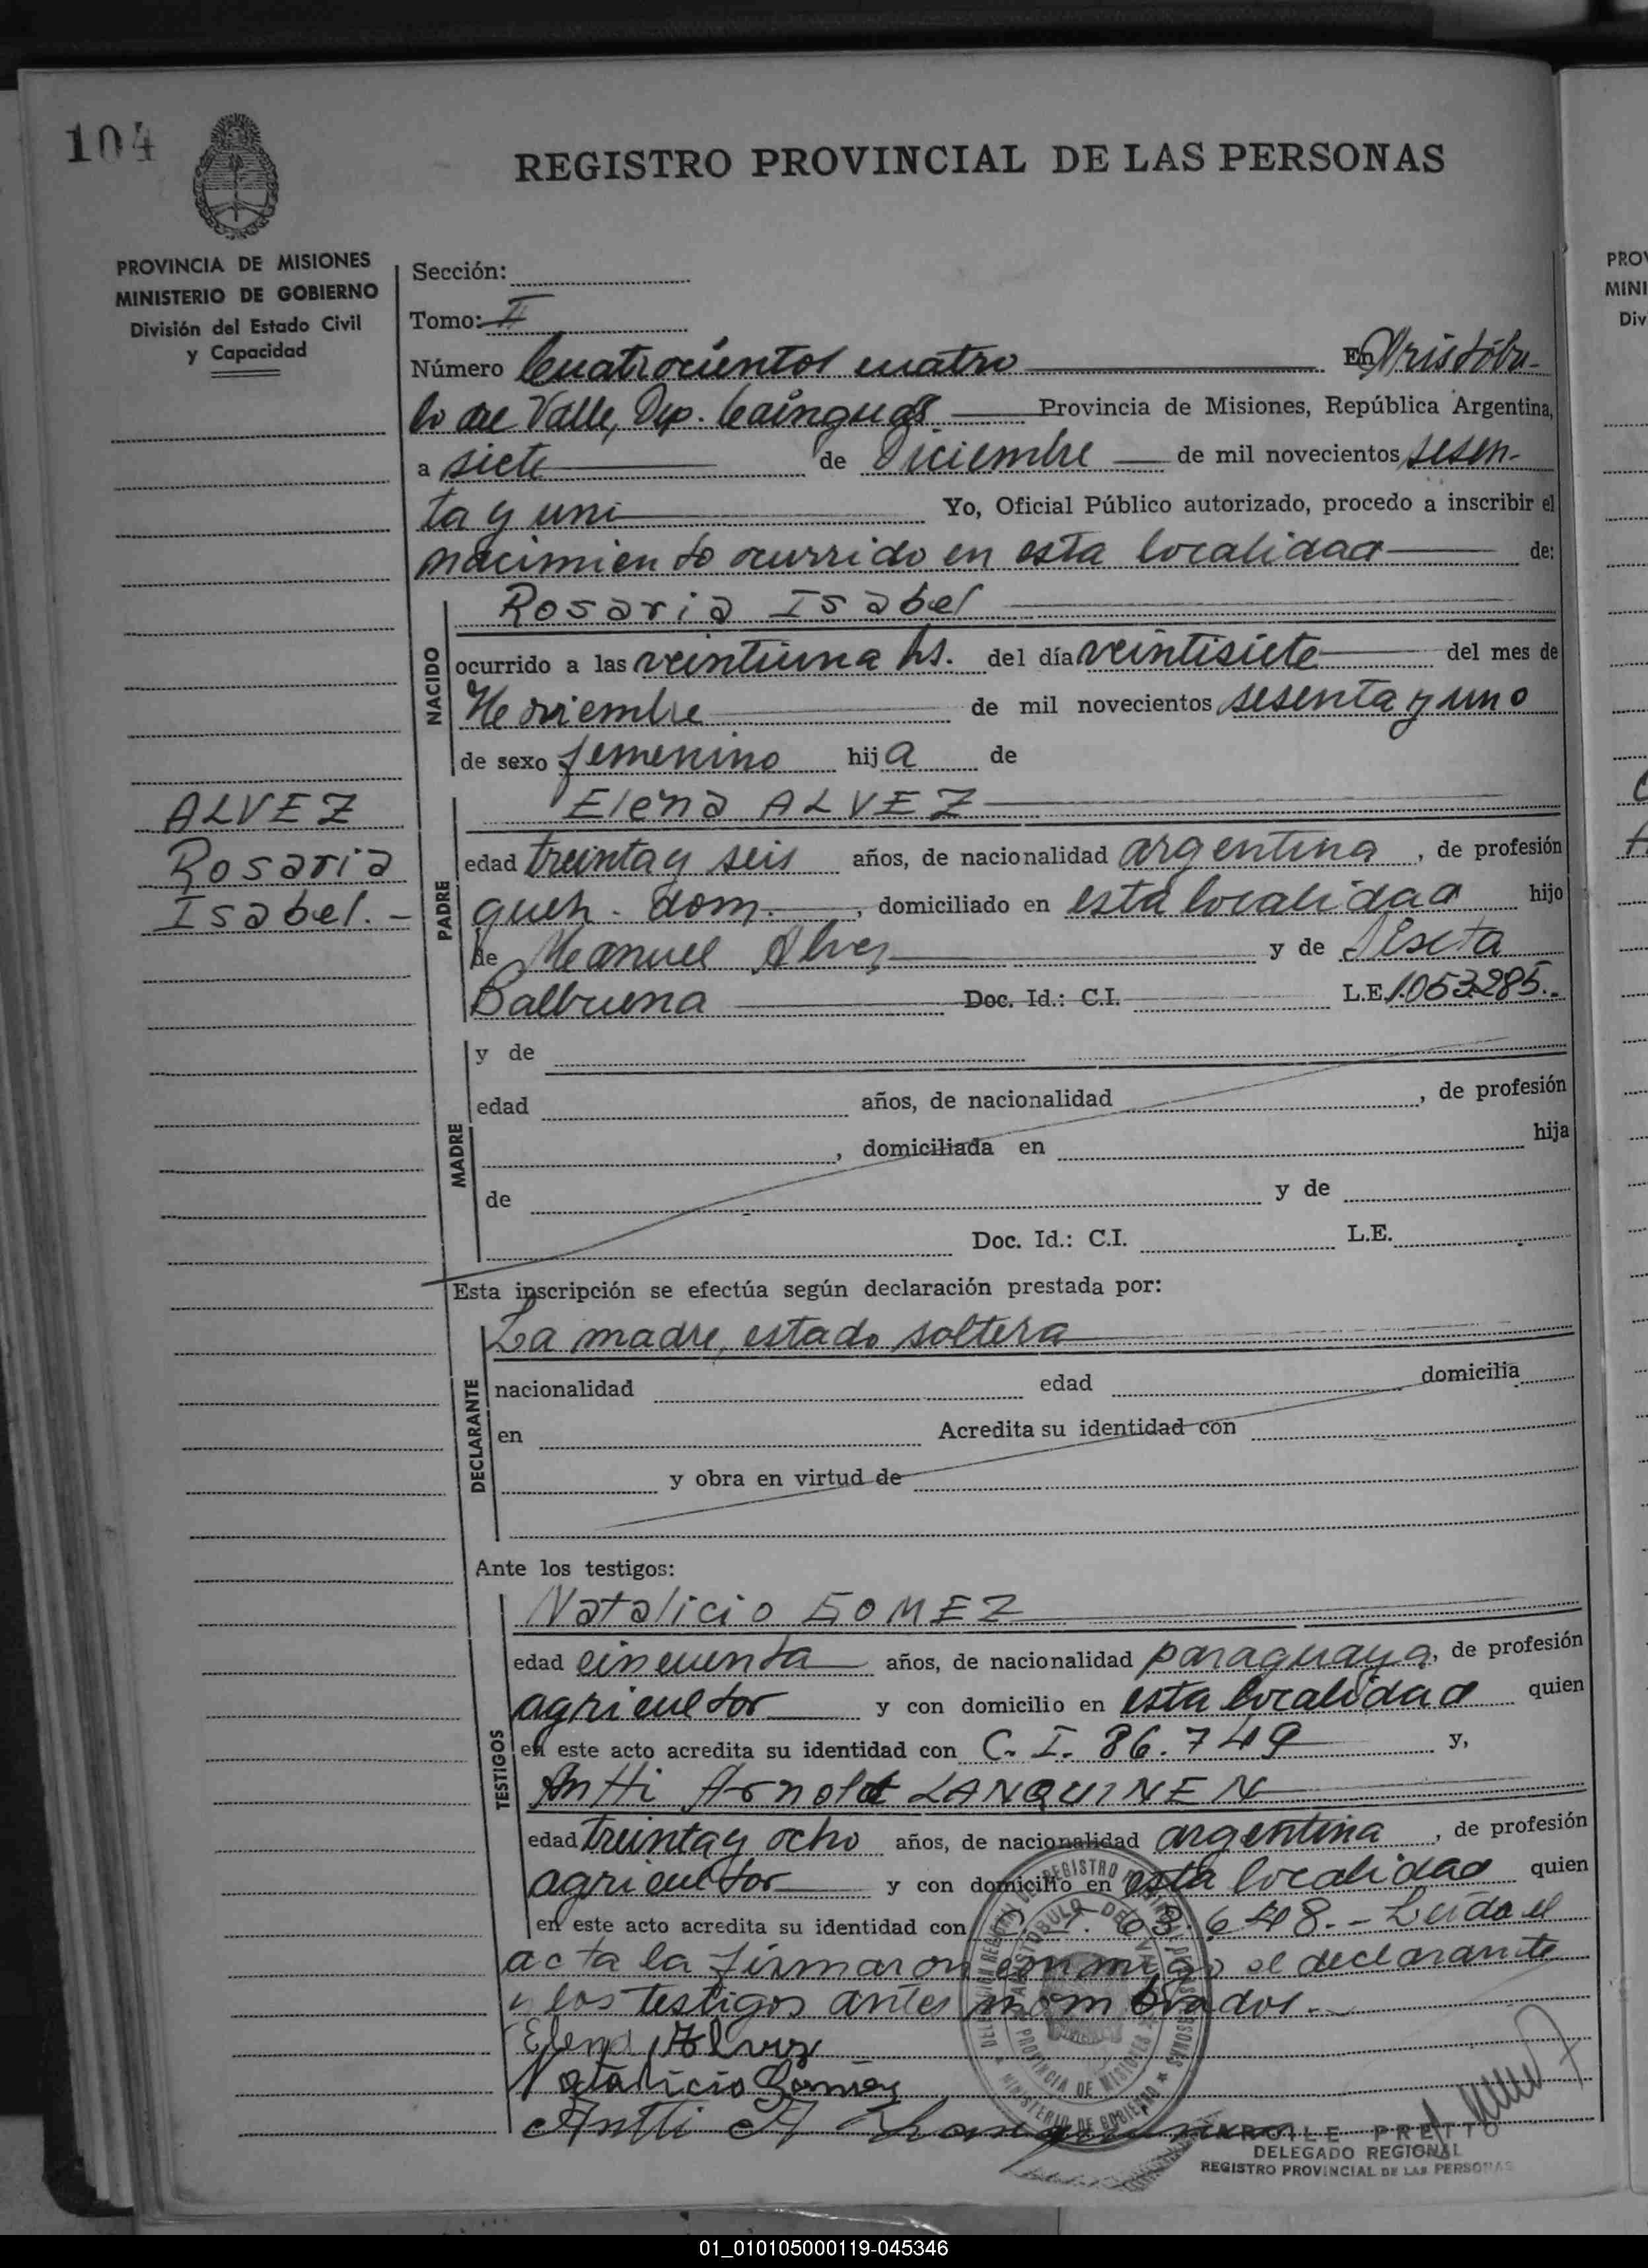 104
REGISTRO PROVINCIAL DE LAS PERSONAS
PROVINCIA DE MISIONES
MINISTERIO DE GOBIERNO
División del Estado Civil
y Capacidad
Sección:
Tomo: II
Número Cuatrocientos cuatro En Aristóbu-
lo del Valle, Dep. Cainguás Provincia de Misiones, República Argentina,
a siete de Diciembre de mil novecientos sesen-
ta y uno Yo, Oficial Público autorizado, procedo a inscribir el
nacimiento ocurrido en esta localidad de:
NACIDO
Rosaria Isabel
ocurrido a las veintiuna hs. del día veintisiete del mes de
Noviembre de mil novecientos sesenta y uno
de sexo femenino hija de
ALVEZ
Rosaria
Isabel.-
PADRE
Elena ALVEZ
edad treinta y seis años, de nacionalidad argentina, de profesión
queh. dom., domiciliado en esta localidad hijo
de Manuel Alvez y de
Balbuena Doc. Id.: C.I. L.E. 1.053.285.-
MADRE
y de
edad años, de nacionalidad , de profesión
, domiciliada en hija
de y de
Doc. Id.: C.I. L.E.
Esta inscripción se efectúa según declaración prestada por:
DECLARANTE
La madre, estado soltera
nacionalidad edad domicilia
en Acredita su identidad con
y obra en virtud de
Ante los testigos:
TESTIGOS
Natalicio GOMEZ
edad cincuenta años, de nacionalidad paraguaya, de profesión
agricultor y con domicilio en esta localidad quien
en este acto acredita su identidad con C. I. 86.749 y,
Antti Arnold LANQUINEN
edad treinta y ocho años, de nacionalidad argentina, de profesión
agricultor y con domicilio en esta localidad quien
en este acto acredita su identidad con C. I. 63.648.- Leída el
acta la firmaron conmigo el declarante
y los testigos antes nombrados.-
Elena Alvez
Natalicio Gomez
Antti A
PRETTO
DELEGADO REGIONAL
REGISTRO PROVINCIAL DE LAS PERSONAS
PROVINCIA DE MISIONES
MINISTERIO DE GOBIERNO
01_010105000119-045346